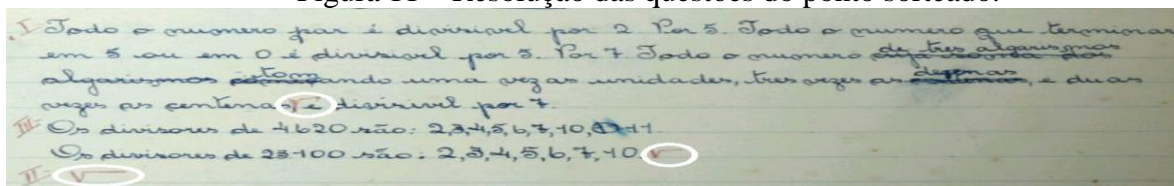 Figura 11 – Resolução das questões do ponto sorteado.
I Todo o numero par é divisivel por 2 Por 5. Todo o numero que terminar
em 5 ou em 0 é divisivel por 5. Por 7 Todo o numero de tres algarismos
algarismos tomando uma vez as unidades, tres vezes as dezenas, e duas
vezes as centenas, é divisivel por 7.
III= Os divisores de 4620 são: 2,3,4,5,6,7,10, 11
Os divisores de 23100 são: 2,3,4,5,6,7,10
II=